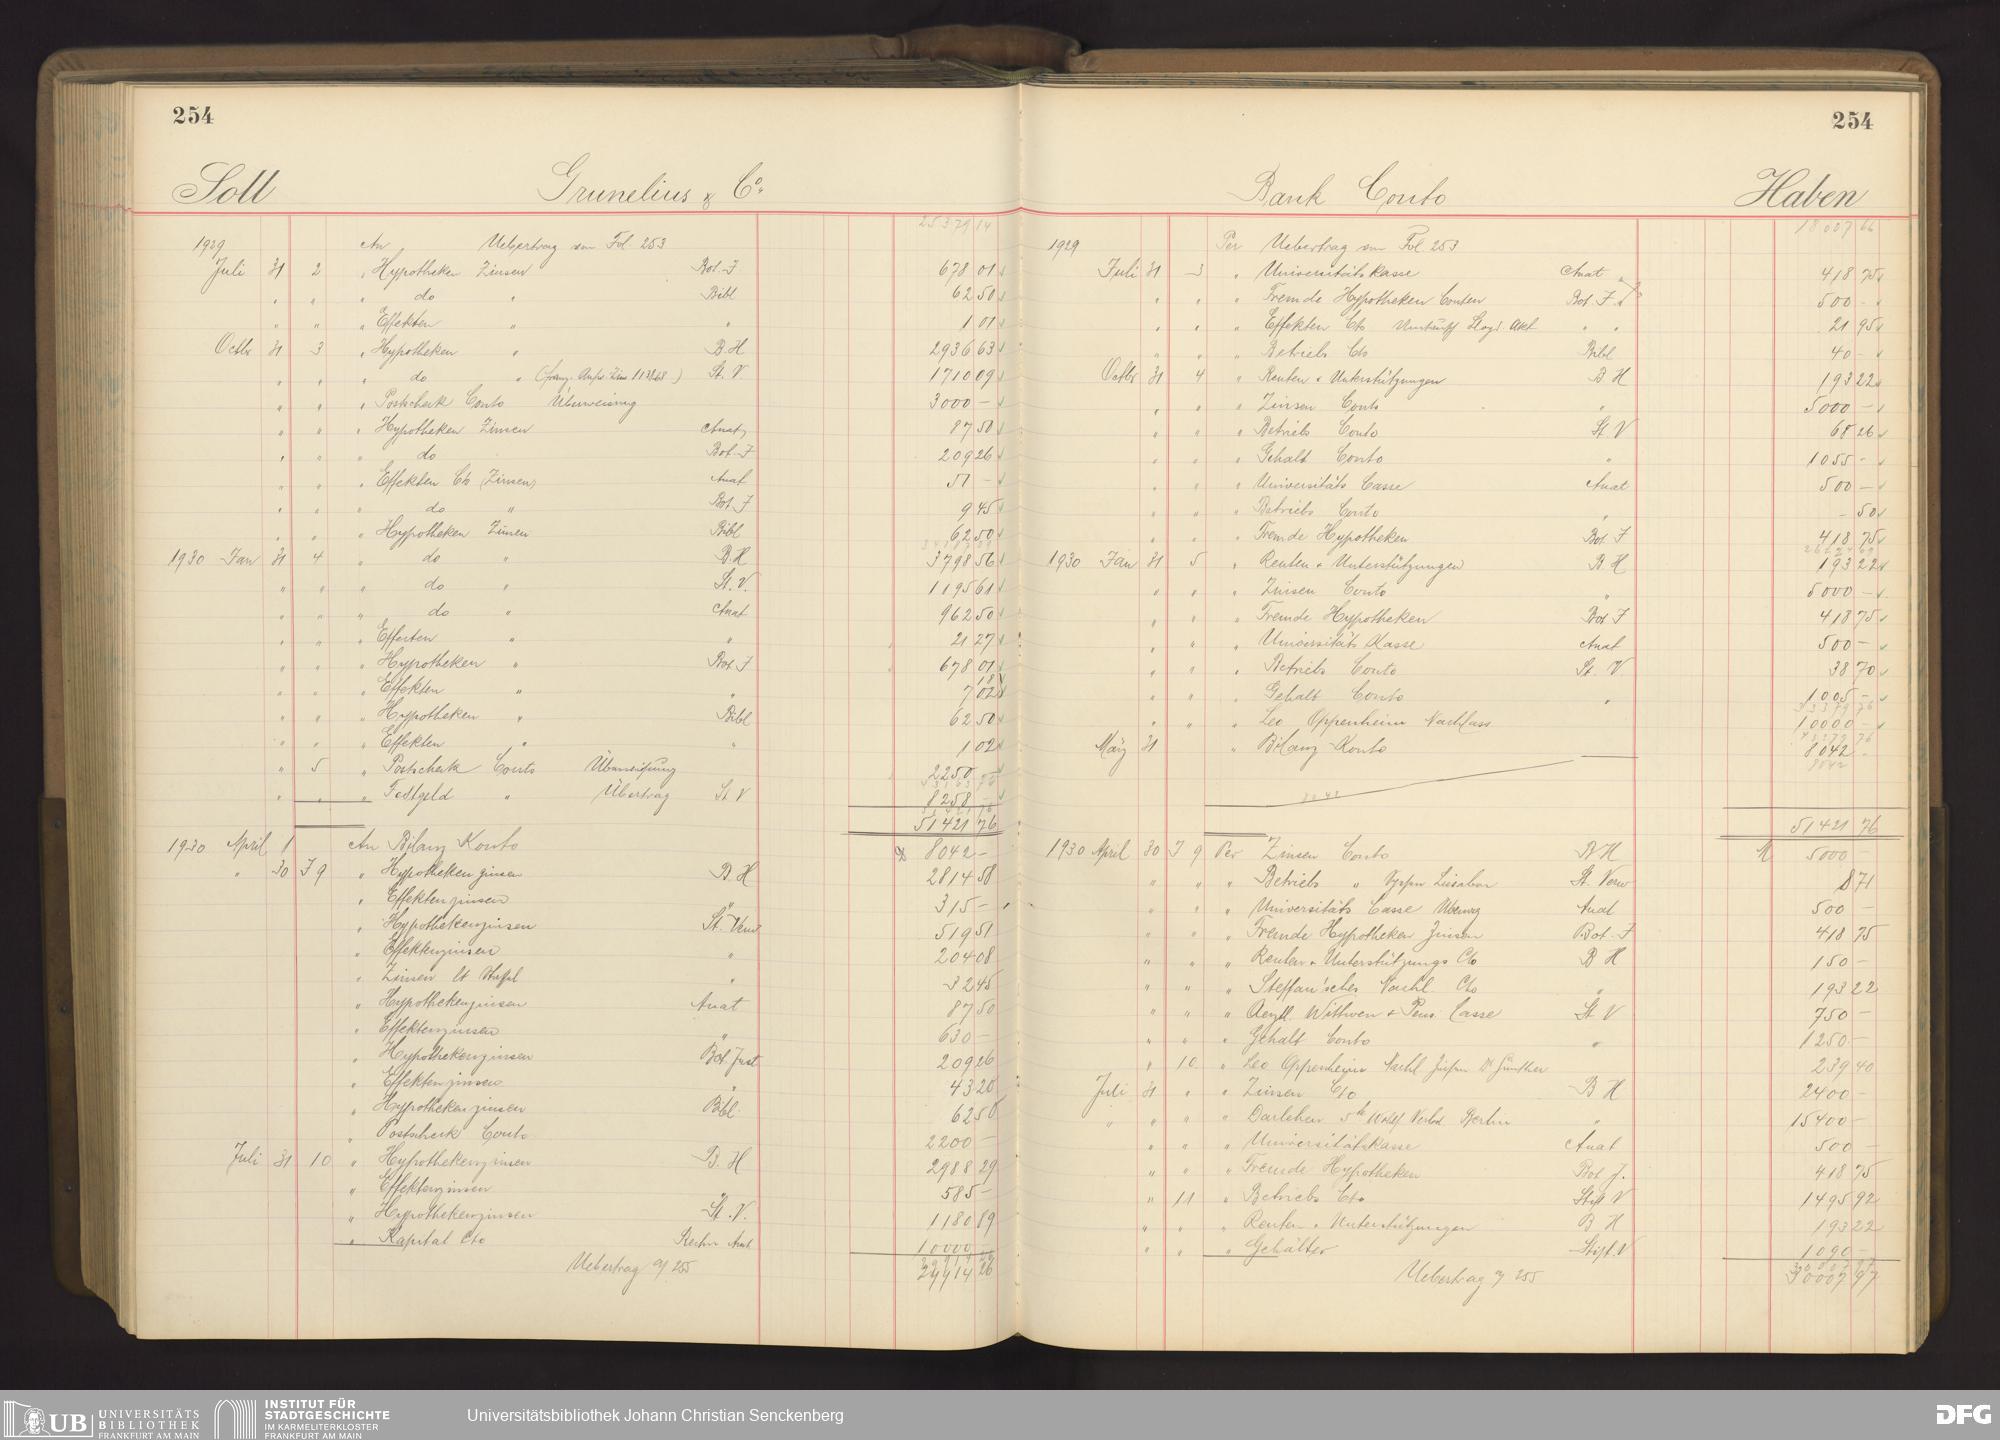 254
Soll Grunelius & Co.
25379 14
1929 An Uebertrag von Fol. 253
Juli 31 2 " Hypotheken Zinsen Bot. J 678 01
" " " do " Bibl 62 50
" " " Effekten " " 1 01
Octbr 31 3 " Hypotheken " B. H 2936 63
" " " do " St. V. 1710 09
" " " Postscheck Conto Überweisung 3000 –
" " " Hypotheken Zinsen Anat 87 50
" " " do Bot. J 209 26
" " " Effekten Cto (Zinsen) Anat 51 –
" " " do " Bot. J 9 45
" " " Hypotheken Zinsen Bibl 62 50
1930 Jan 31 4 " do " B. H 3798 56
" " " do " St. V. 1195 61
" " " do " Anat 962 50
" " " Effekten " " 21 27
" " " Hypotheken " Bot. J 678 01
" " " Effekten " " 7 02
" " " Hypotheken " Bibl 62 50
" " " Effekten " " 1 02
" 5 " Postscheck Conto Überweisung 2250 –
" " " Festgeld " Übertrag St V 8258 –
51421 76
1930 April 1 An Bilanz Konto 8042 –
" 30 J 9 " Hypothekenzinsen B. H 2814 58
" Effektenzinsen " 315 –
" Hypothekenzinsen St. Verw 519 51
" Effektenzinsen " 204 08
" Zinsen lt Staffel " 32 45
" Hypothekenzinsen Anat 87 50
" Effektenzinsen " 630 –
" Hypothekenzinsen Bot. Inst 209 26
" Effektenzinsen " 43 20
" Hypothekenzinsen Bibl. 62 50
" Postscheck Conto 2200 –
Juli 31 10 " Hypothekenzinsen B. H 2988 29
" Effektenzinsen " 585 –
" Hypothekenzinsen St. V. 1180 89
" Kapital Cto Anat 10000 –
Uebertrag a/ 255 29914 26
254
Bank Conto Haben
18007 66
1929 Per Uebertrag von Fol. 253
Juli 31 3 " Universitätskasse Anat 418 75
" " " Fremde Hypotheken Conten Bot. J. 500 –
" " " Effekten Cto Umtausch Lloyd Akt " " 21 95
" " " Betriebs Cto Bibl 40 –
Octbr 31 4 " Renten & Unterstützungen B H 193 22
" " " Zinsen Conto " 5000 –
" " " Betriebs Conto St V 68 26
" " " Gehalt Conto " 1055 –
" " " Universitäts Casse Anat 500 –
" " " Betriebs Conto " – 50
" " " Fremde Hypotheken Bot J 418 75
1930 Jan 31 5 " Renten & Unterstützungen B H 193 22
" " " Zinsen Conto " 5000 –
" " " Fremde Hypotheken Bot J 418 75
" " " Universitäts Kasse Anat 500 –
" " " Betriebs Conto St. V 38 70
" " " Gehalt Conto " 1005 –
" " " Leo Oppenheim Nachlass 10000 –
März 31 " Bilanz-Konto 8042 –
8042
51421 76
1930 April 30 J 9 Per Zinsen Conto B H M 5000 –
" " " Betriebs " St. Verw 8 71
" " " Universitäts Casse Anat 500 –
" " " Fremde Hypotheken Zinsen Bot. J 418 75
" " " Renten & Unterstützungs Cto B H 150 –
" " " Steffan'sches Nachl. Cto " 193 22
" " " Aerztl. Wittwen & Pens. Casse St V 750 –
" " " Gehalt Conto " 1250 –
" 10 " Leo Oppenheim Nachl Zinsen Dr Günther 239 40
Juli 31 " " Zinsen Cto B H 2400 –
" " " Darlehen Berlin " 15400 –
" " " Universitätskasse Anat 500 –
" " " Fremde Hypotheken Bot J. 418 75
" 11 " Betriebs Cto Stift V 1495 92
" " " Renten & Unterstützungen B H 193 22
" " " Gehälter Stift. V 1090 –
Uebertrag a/ 255 30007 97
UB UNIVERSITÄTS
BIBLIOTHEK
FRANKFURT AM MAIN
INSTITUT FÜR
STADTGESCHICHTE
IM KARMELITERKLOSTER
FRANKFURT AM MAIN
Universitätsbibliothek Johann Christian Senckenberg
DFG